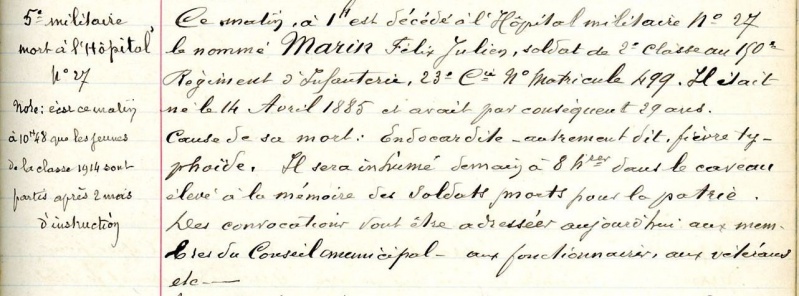 5e militaire
mort à l'Hôpital
No 27
Note: c'est ce matin
à 10h48 que les jeunes
de la classe 1914 sont
partis après 2 mois
d'instruction
Ce matin, à 1h est décédé à l'Hôpital militaire No 27
le nommé Marin Félix Julien, soldat de 2e classe au 150e
Régiment d'Infanterie, 23e Cie No Matricule 499. Il était
né le 14 Avril 1885 et avait par conséquent 29 ans.
Cause de sa mort: Endocardite - autrement dit, fièvre ty-
phoïde. Il sera inhumé demain à 8 hres dans le caveau
élevé à la mémoire des soldats morts pour la patrie.
Des convocations vont être adressées aujourd'hui aux mem-
bres du Conseil municipal - aux fonctionnaires, aux vétérans
etc —